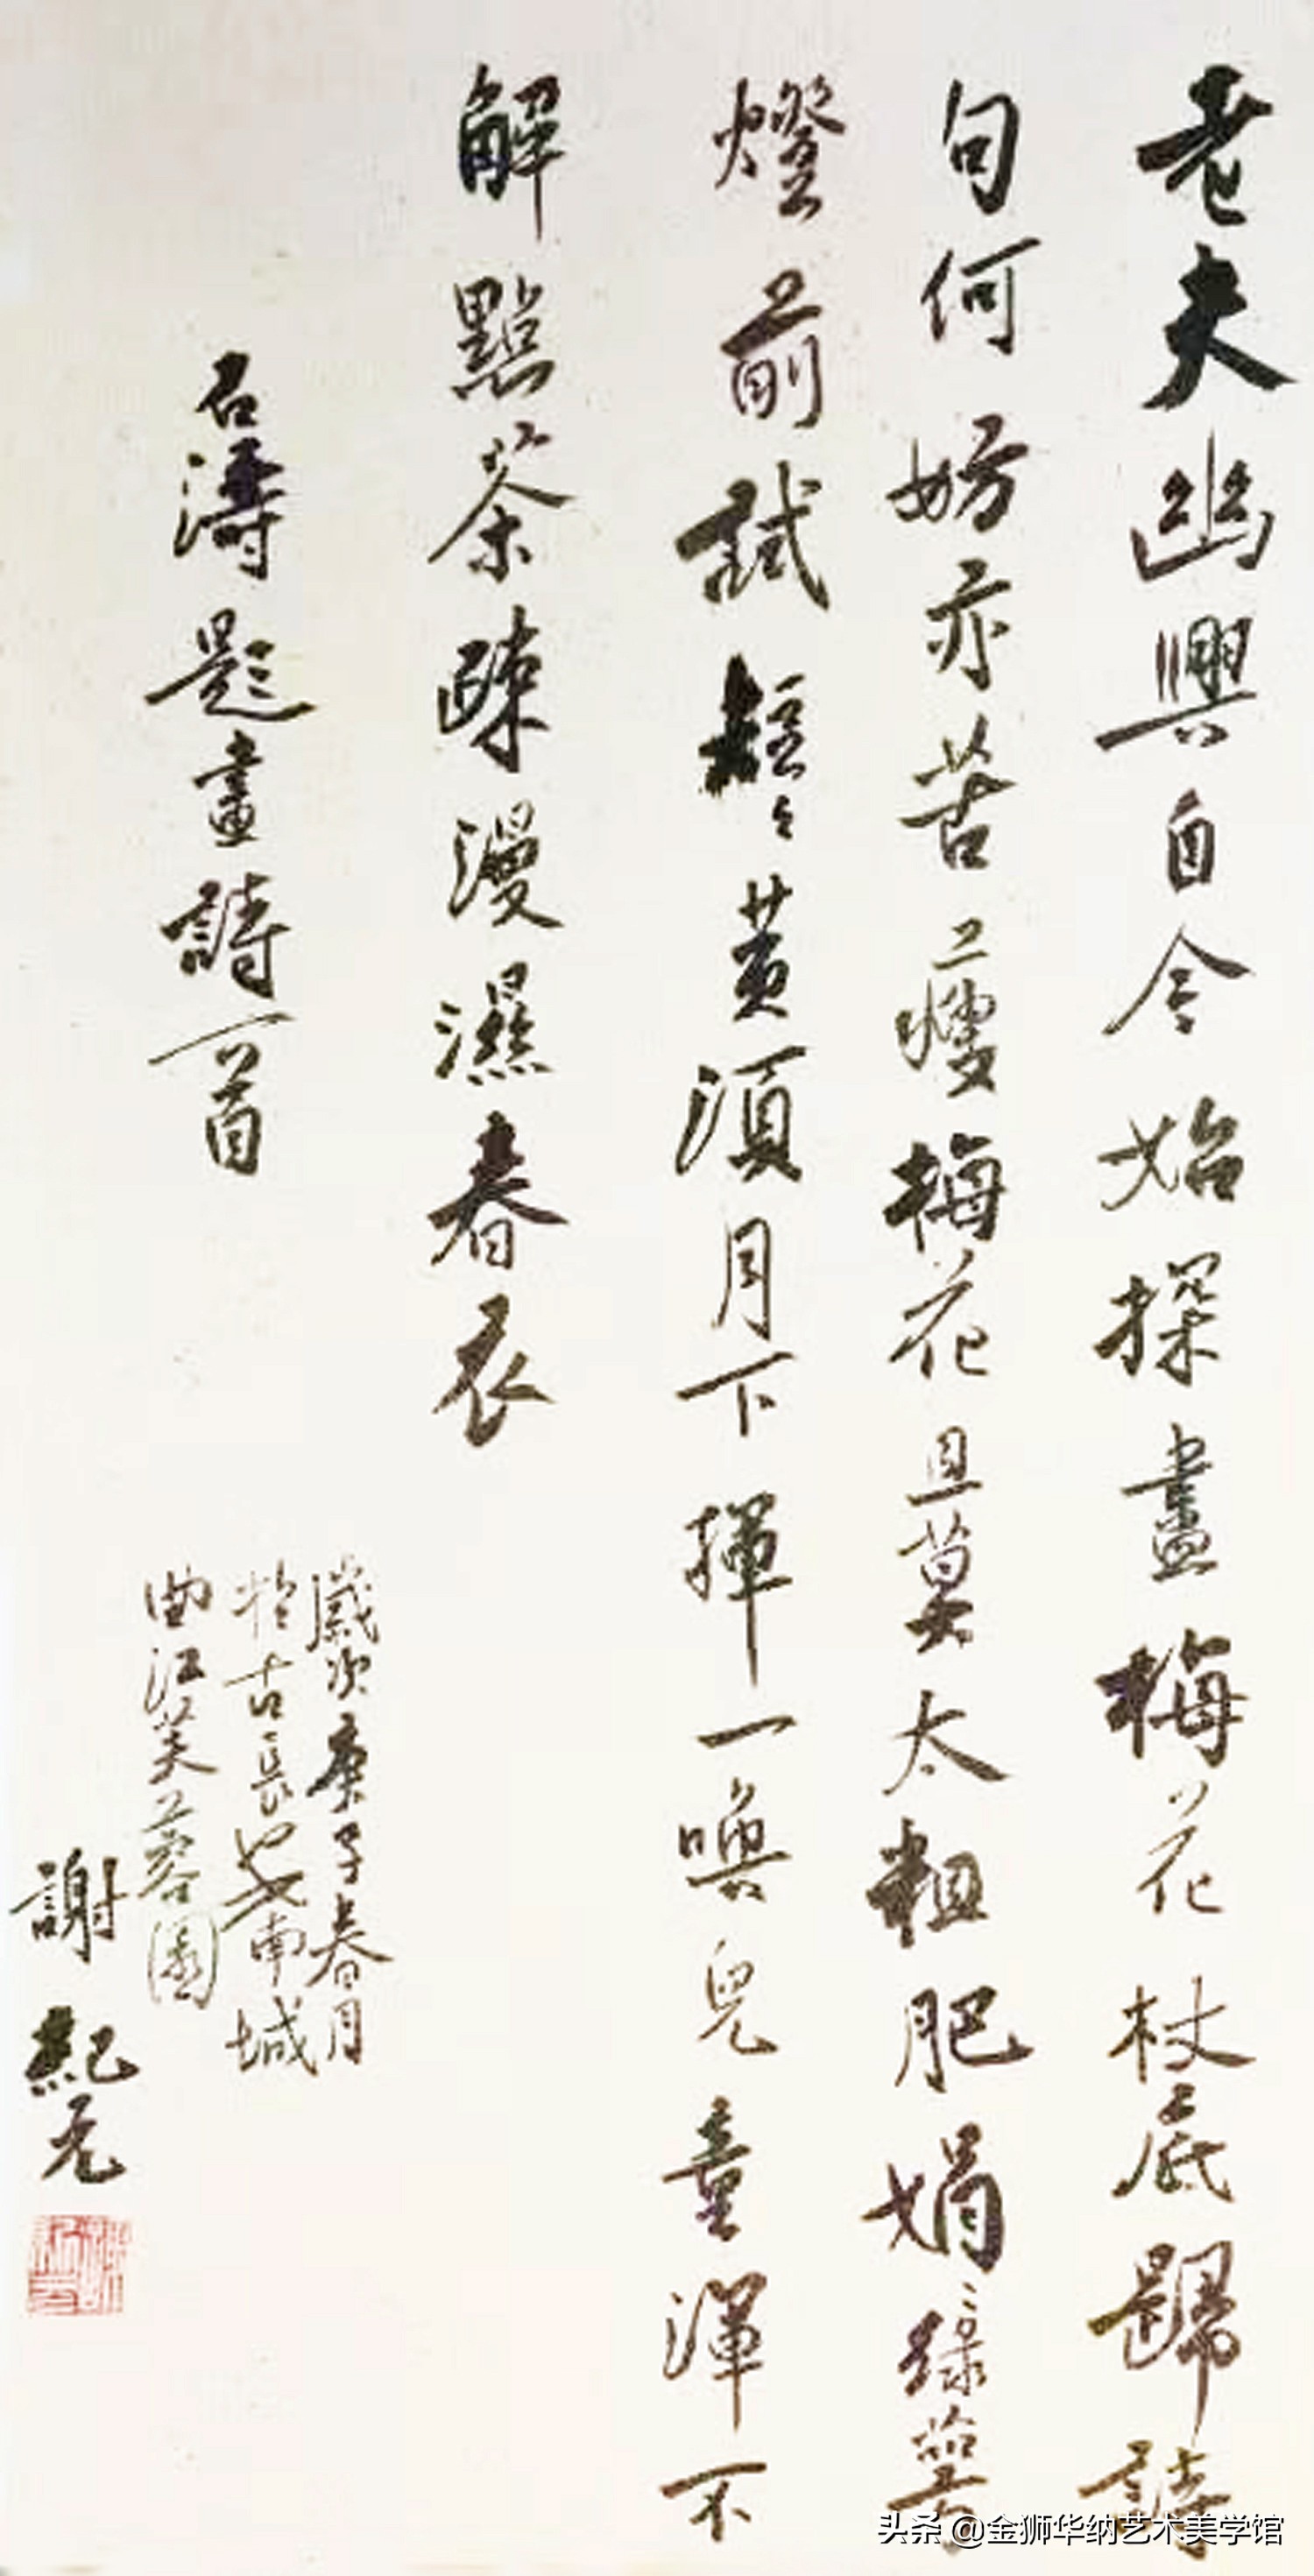 老夫幽興自今始探畫梅花杖底歸詩
句何妨亦苦二瘦梅花且莫太粗肥娟〻綠萼
燈前試短〻黃須月下揮一喚兒童渾不
解點茶疎漫濕春衣
石濤題畫詩一首
歲次庚子春月
於古長安南城
曲江芙蓉園
謝紀元
头条 @金狮华纳艺术美学馆